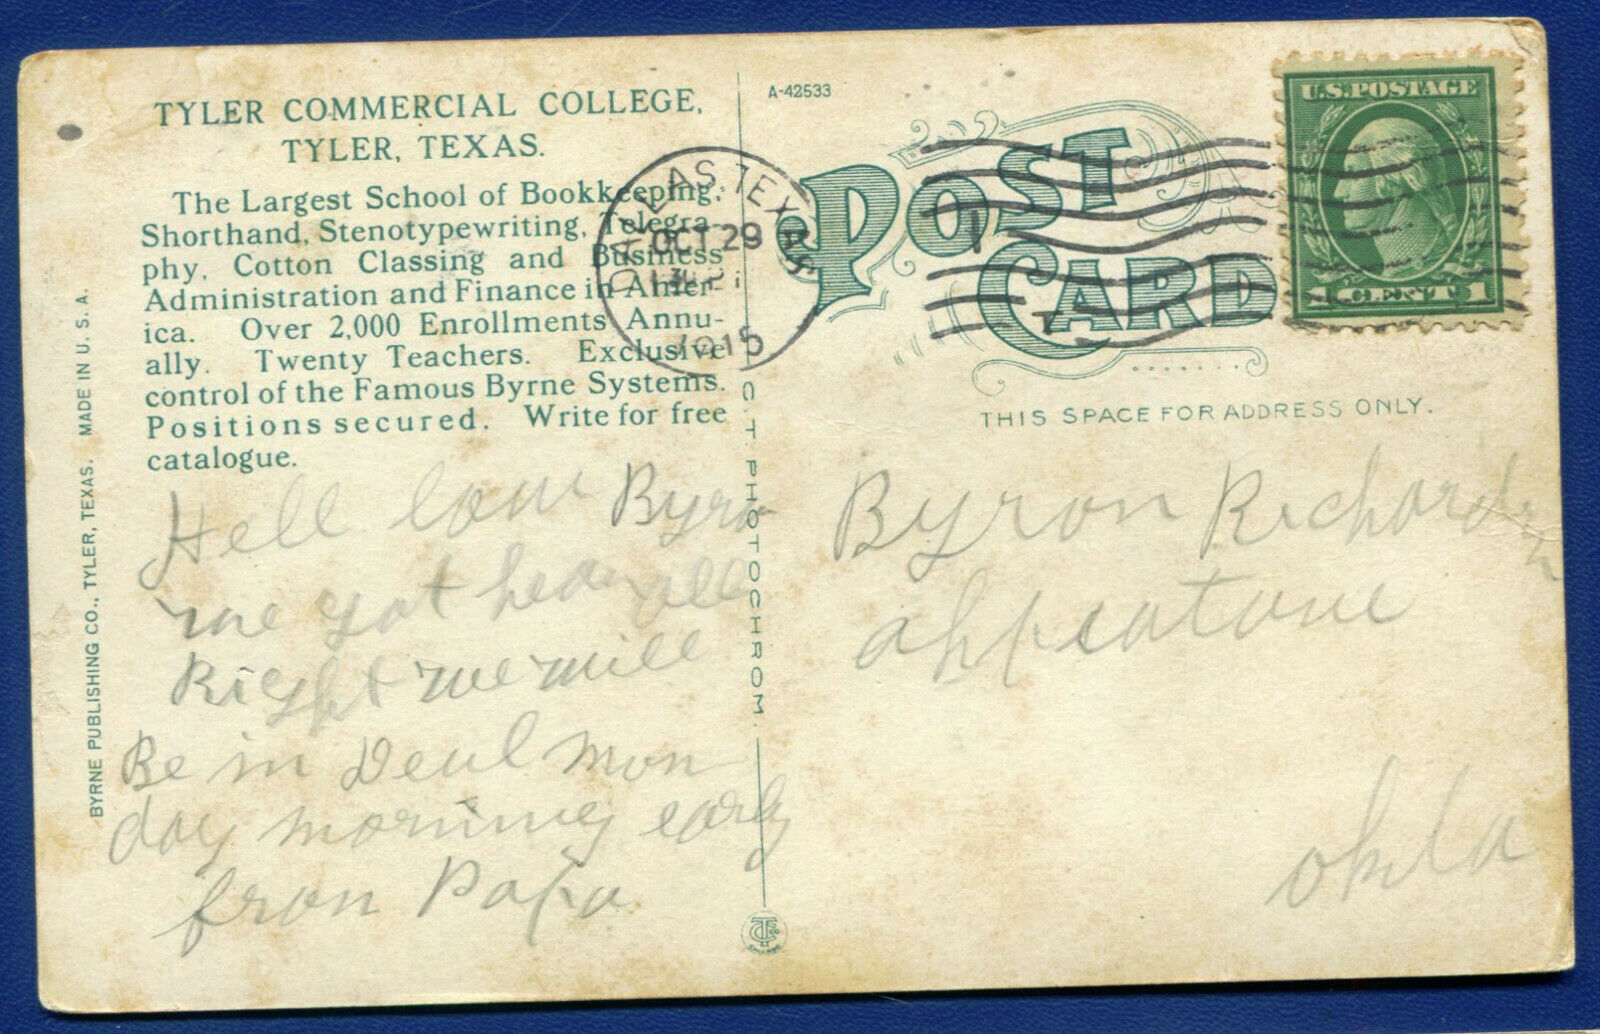 TYLER COMMERCIAL COLLEGE,
TYLER, TEXAS.
The Largest School of Bookkeeping,
Shorthand, Stenotypewriting, Telegra-
phy, Cotton Classing and Business
Administration and Finance in Amer-
ica. Over 2,000 Enrollments Annu-
ally. Twenty Teachers. Exclusive
control of the Famous Byrne Systems.
Positions secured. Write for free
catalogue.
Hell low Byron
we got hear all
Right we will
Be in Mon
day morning early
from Papa
BYRNE PUBLISHING CO., TYLER, TEXAS. MADE IN U. S. A.
C. T. PHOTOCHROM.
A-42533
DALLAS, TEXAS
OCT 29
1915
POST
CARD
U.S. POSTAGE
1 CENT 1
THIS SPACE FOR ADDRESS ONLY.
Byron Richardson
Okla
CHICAGO